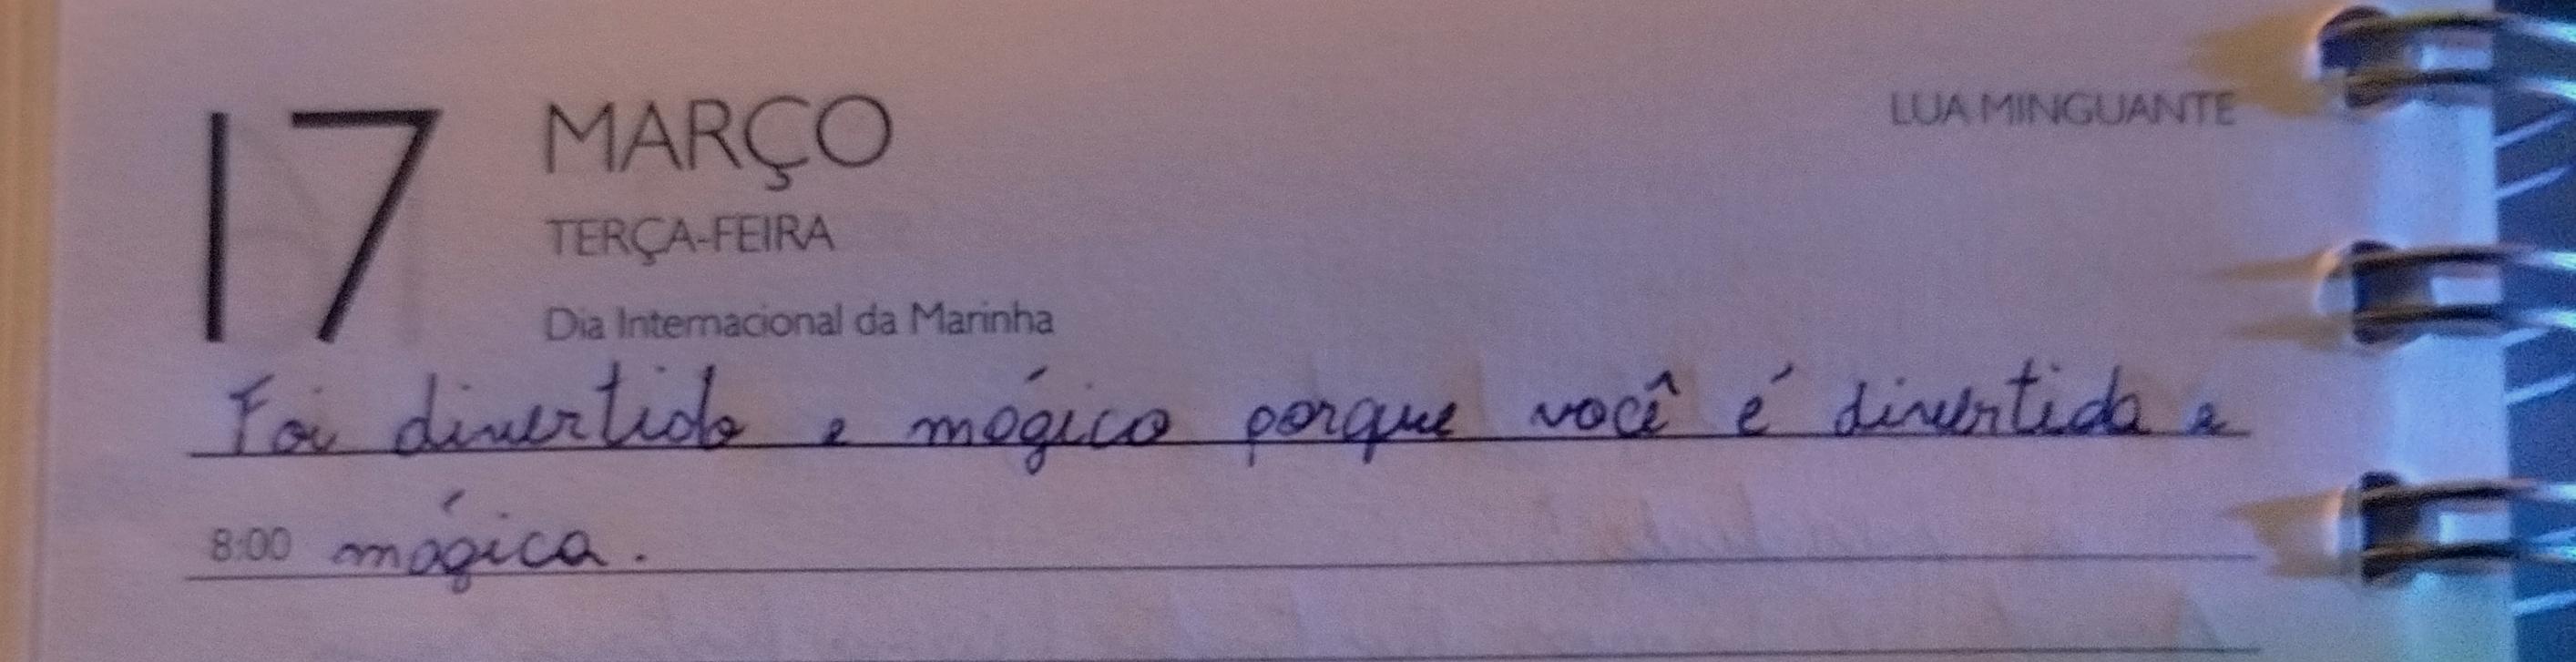 17 MARÇO LUA MINGUANTE
TERÇA-FEIRA
Dia Internacional da Marinha
Foi divertido e mágico porque você é divertida e
8:00 mágica.